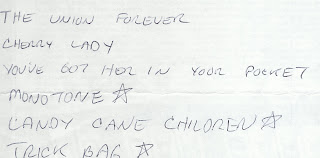 THE UNION FOREVER
CHERRY LADY
YOU'VE GOT HER IN YOUR POCKET
MONOTONE ☆
CANDY CANE CHILDREN ☆
TRICK BAG ☆